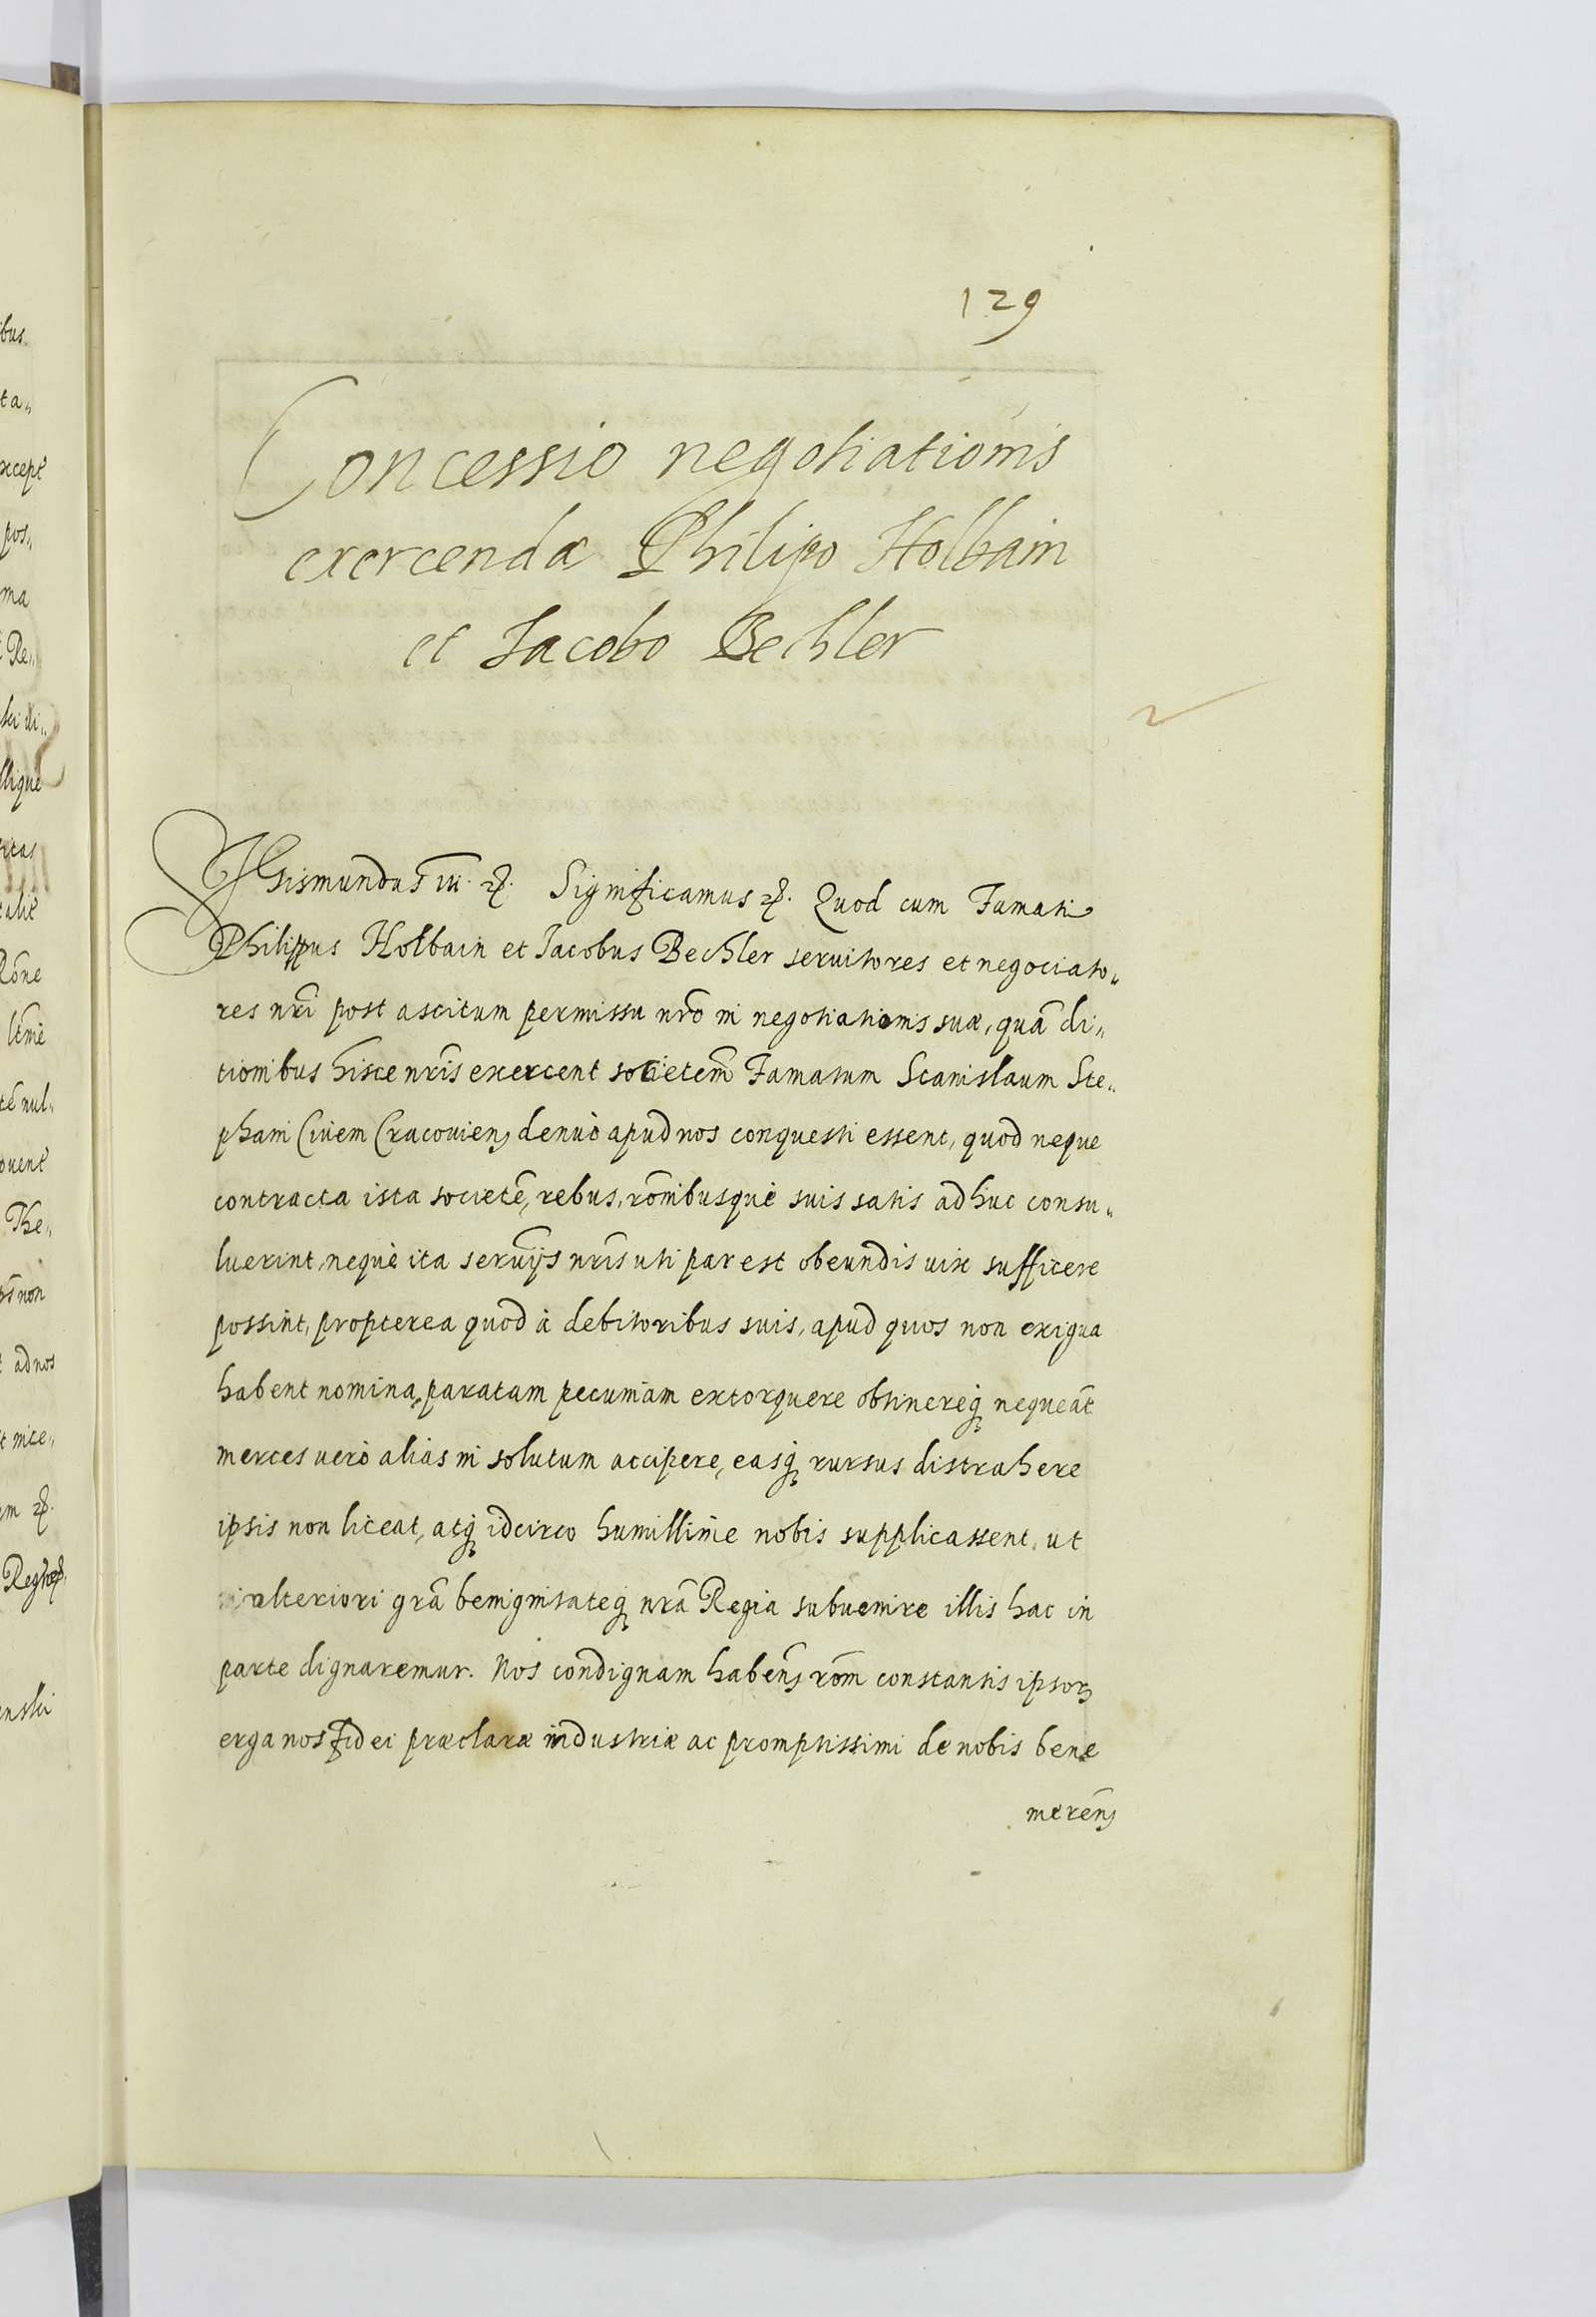 129
Concessio negotiationis
exercendæ Philipo Holbain
et Jacobo Bechler
Sigismundus iii. etc. Significamus etc. Quod cum Famati
Philippus Holbain et Jacobus Bechler seruitores et negociato„
res nr̃i post ascitum permissu nrõ in negotiationis suæ, quã di„
tionibus hisce nr̃is exercent sotietem̃ Famatum Stanislaum Ste„
phani Ciuem Cracouien̄ denuò apud nos conquesti essent, quod neque
contracta ista societẽ, rebus, rõnibusquè suis satis adhuc consu„
luerint, nequè ita seruijs nr̃is uti par est obeundis uix sufficere
possint, propterea quod à debitoribus suis, apud quos non exigua
habent nomina, paratam pecuniam extorquere obtinereq̃ nequeãt
merces uerò alias in solutum accipere, easq̃ rursus distrahere
ipsis non liceat, atq̃ idcirco humillimè nobis supplicassent, ut
ulteriori grã benignitateq̃ nrã Regia subuenire illis hac in
parte dignaremur. Nos condignam haben̄ rõm constantis ipsoꝝ
erga nos fidei præclaræ industriæ ac promptissimi de nobis bene
meren̄
ibus
ta„
except
pos„
ma
Re„
lique
itas
Rõne
ltẽme
tẽ nul„
ouent
The„
non
ad nos
t mice„
um etc.